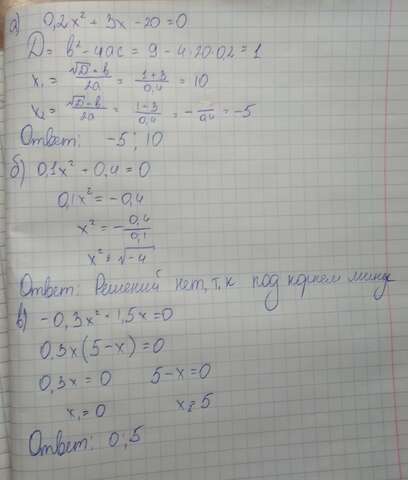 а) 0,2x² + 3x - 20 = 0
D = b² - 4ac = 9 - 4·20·0,2 = 1
x₁ = (√D - b)/2a = (1+3)/0,4 = 10
x₂ = (√D - b)/2a = (1-3)/0,4 = - /0,4 = -5
Ответ: -5; 10
б) 0,1x² + 0,4 = 0
0,1x² = -0,4
x² = -0,4/0,1
x² = √-4
Ответ: Решений нет, т.к под корнем минус
в) -0,3x² + 1,5x = 0
0,3x(5-x) = 0
0,3x = 0 5-x = 0
x₁ = 0 x₂ = 5
Ответ: 0; 5